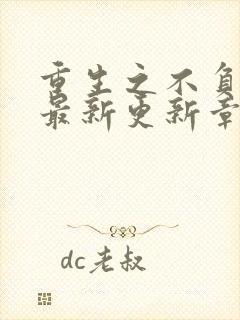 重生之不负
最新更新章
dc老叔